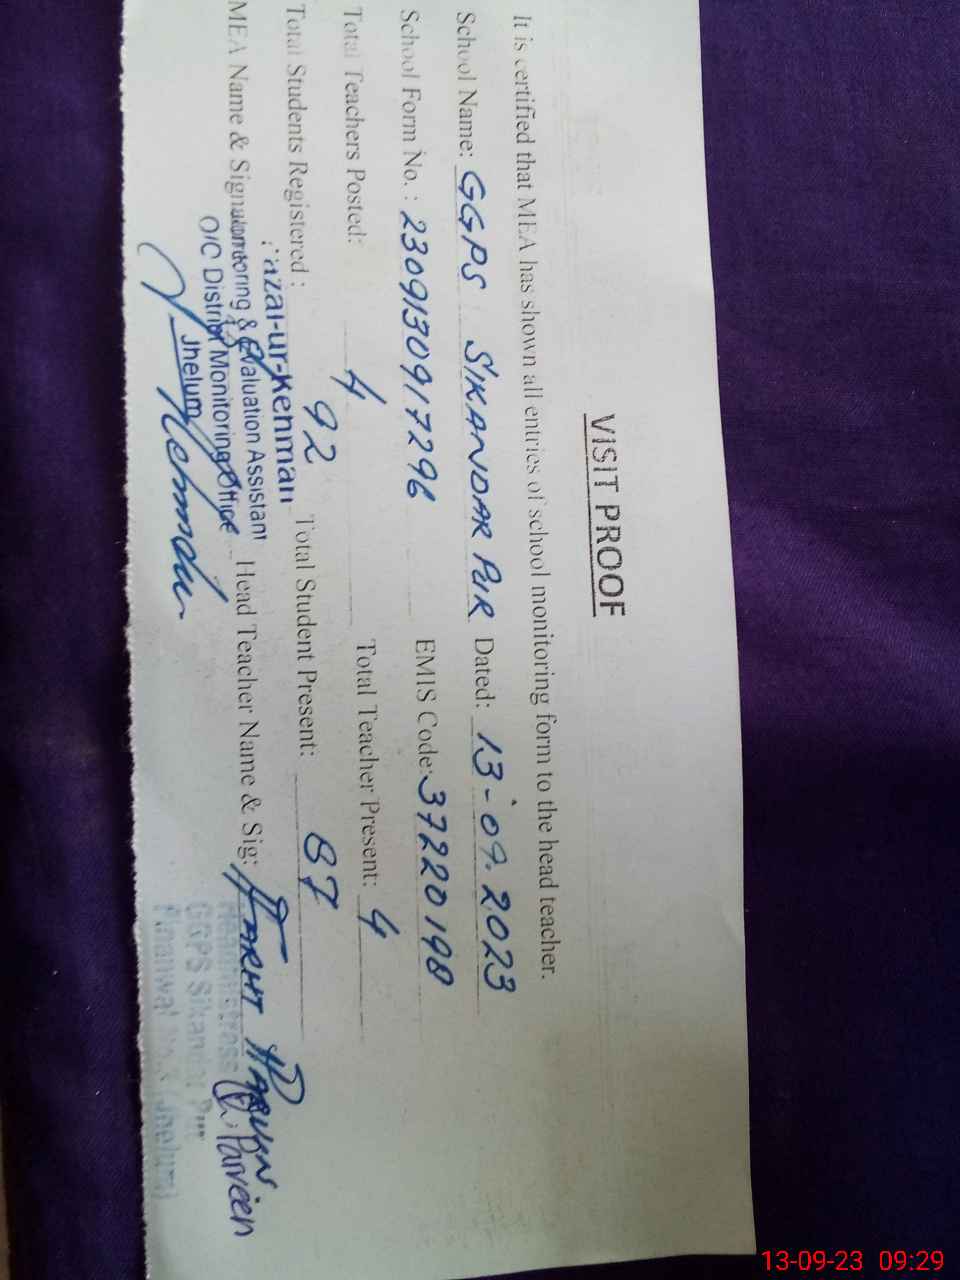 VISIT PROOF
It is certified that MEA has shown all entries of school monitoring form to the head teacher.
School Name: GGPS SIKANDAR PUR Dated: 13-09.2023
School Form No.: 2309130917296 EMIS Code: 37220198
Total Teachers Posted: 4 Total Teacher Present: 4
Total Students Registered: 92 Total Student Present: 87
MEA Name & Head Teacher Name & Sig:
Monitoring & Evaluation Assistant
O/C District Monitoring Office
Jhelum
Headmistress
GGPS Sikandar Pur
Parveen
13-09-23 09:29